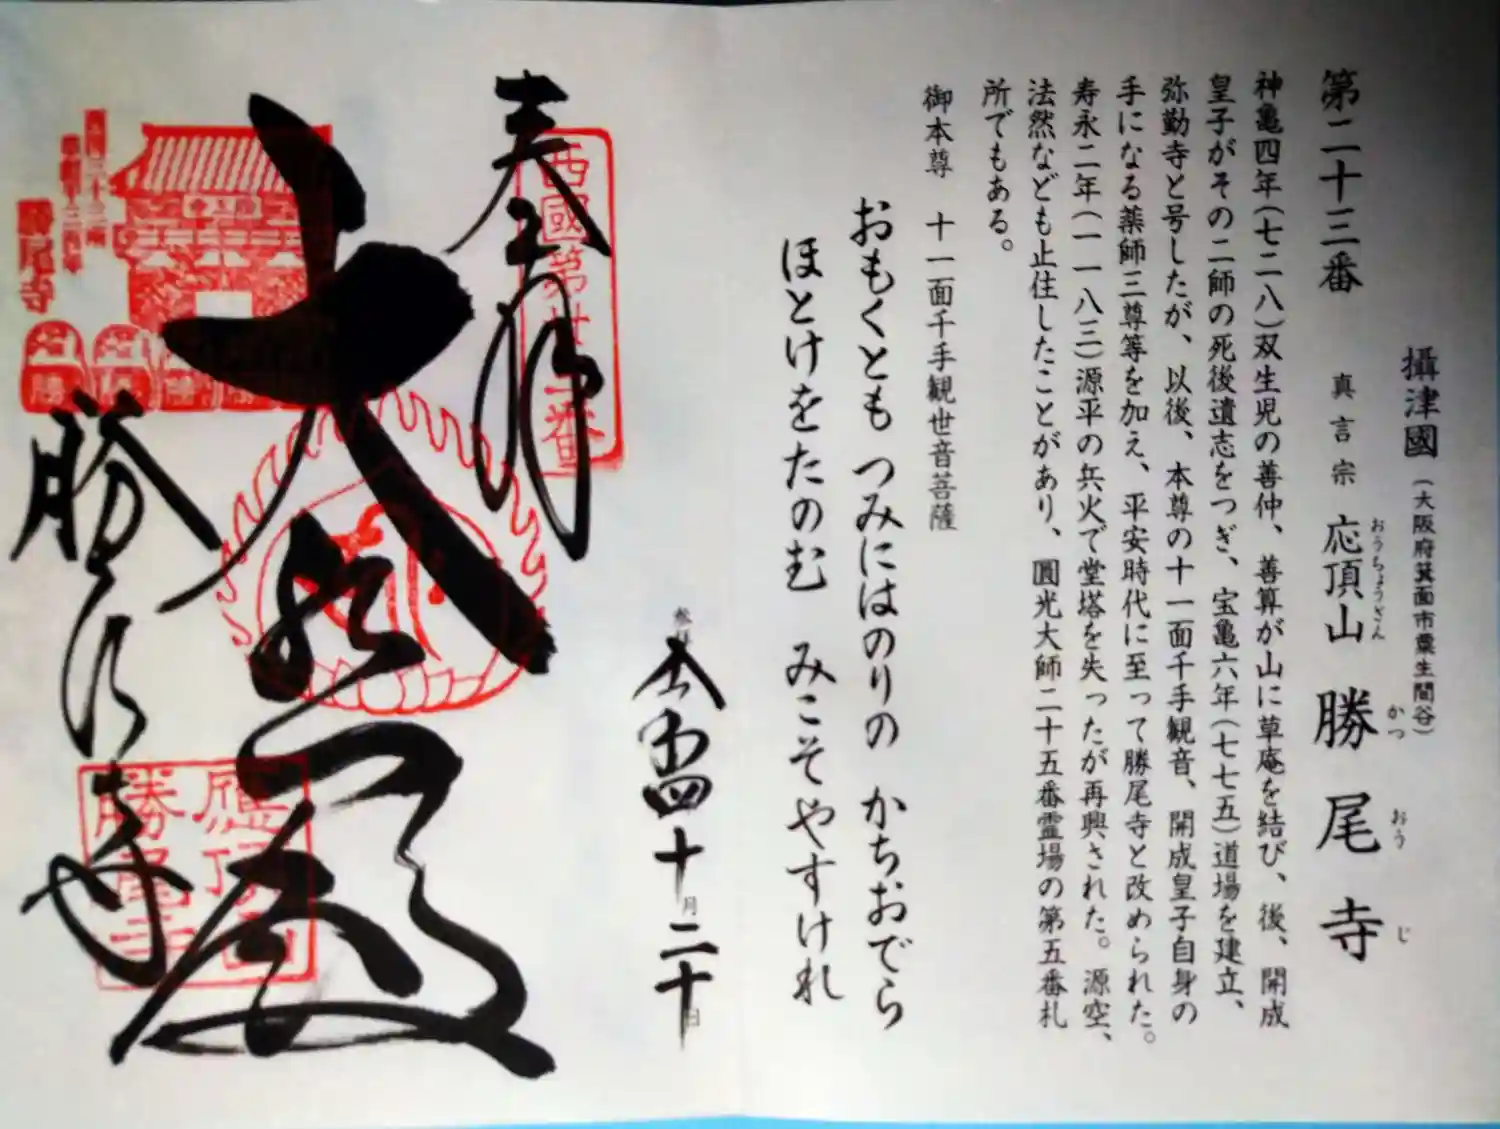 攝津國(大阪府箕面市粟生間谷)
第二十三番 真言宗 応頂山 勝尾寺
おうちょうざん かつ おう じ
神亀四年(七二八)双生児の善仲、善算が山に草庵を結び、後、開成
皇子がその二師の死後遺志をつぎ、宝亀六年(七七五)道場を建立、
弥勤寺と号したが、以後、本尊の十一面千手観音、開成皇子自身の
手になる薬師三尊等を加え、平安時代に至って勝尾寺と改められた。
寿永二年(一一八三)源平の兵火で堂塔を失ったが再興された。源空、
法然なども止住したことがあり、圓光大師二十五番霊場の第五番札
所でもある。
御本尊 十一面千手観世音菩薩
おもくとも つみにはのりの かちおでら
ほとけをたのむ みこそやすけれ
参拝
十月二十日
奉拝
西國第廿三番
大悲殿
勝尾寺
勝尾寺